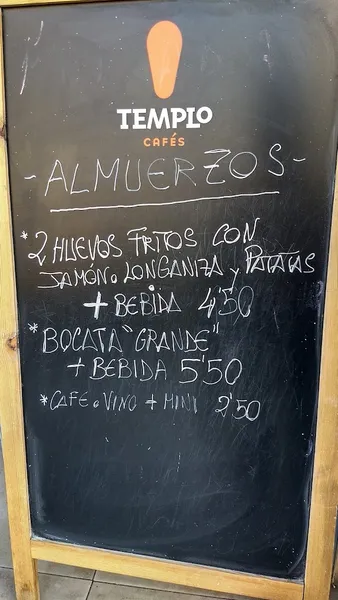 TEMPLO
CAFÉS
-ALMUERZOS-
*2 HUEVOS FRITOS CON
JAMÓN o LONGANIZA y PATATAS
+ BEBIDA 4'50
*BOCATA "GRANDE"
+ BEBIDA 5'50
*CAFE o VINO + MINI 2'50